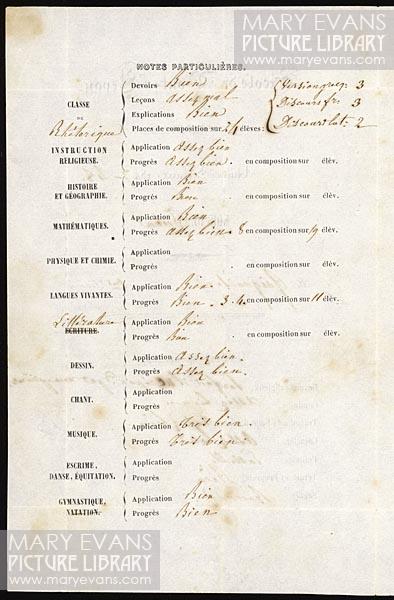 MARY EVANS
PICTURE LIBRARY
www.maryevans.com
NOTES PARTICULIÈRES.
CLASSE DE Rhétorique
Devoirs Bien
Leçons assez mal
Explications Bien
Places de composition sur 24 élèves:
Version grecq. 3
Discours fr. 3
Discours lat. 2
INSTRUCTION RELIGIEUSE.
Application Assez bien
Progrès Assez bien. en composition sur élèv.
HISTOIRE ET GÉOGRAPHIE.
Application Bien
Progrès en composition sur élèv.
MATHÉMATIQUES.
Application Bien
Progrès assez bien. 8 en composition sur 19 élèv.
PHYSIQUE ET CHIMIE.
Application
Progrès en composition sur élèv.
LANGUES VIVANTES.
Application Bien.
Progrès Bien. 3.4. en composition sur 11 élèv.
Littérature
ECRITURE.
Application Bien
Progrès en composition sur élèv.
DESSIN.
Application Assez bien.
Progrès Assez bien.
CHANT.
Application
Progrès
MUSIQUE.
Application Très bien.
Progrès Très bien.
ESCRIME, DANSE, ÉQUITATION.
Application
Progrès
GYMNASTIQUE, NATATION.
Application Bien
Progrès Bien
MARY EVANS
PICTURE LIBRARY
www.maryevans.com